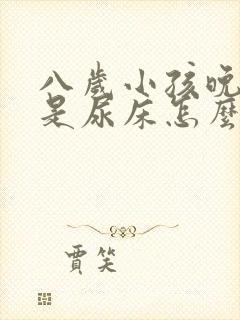 八歲小孩晚
是尿床怎麼
賈笑